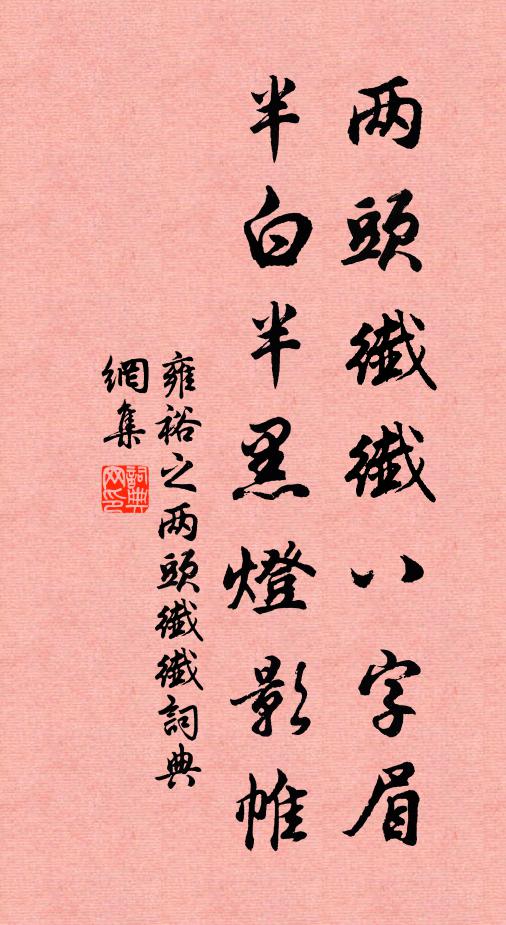 两頭纖纖八字眉
半白半黑燈影帷
雍裕之两頭纖纖詞典
網集
詞典网印